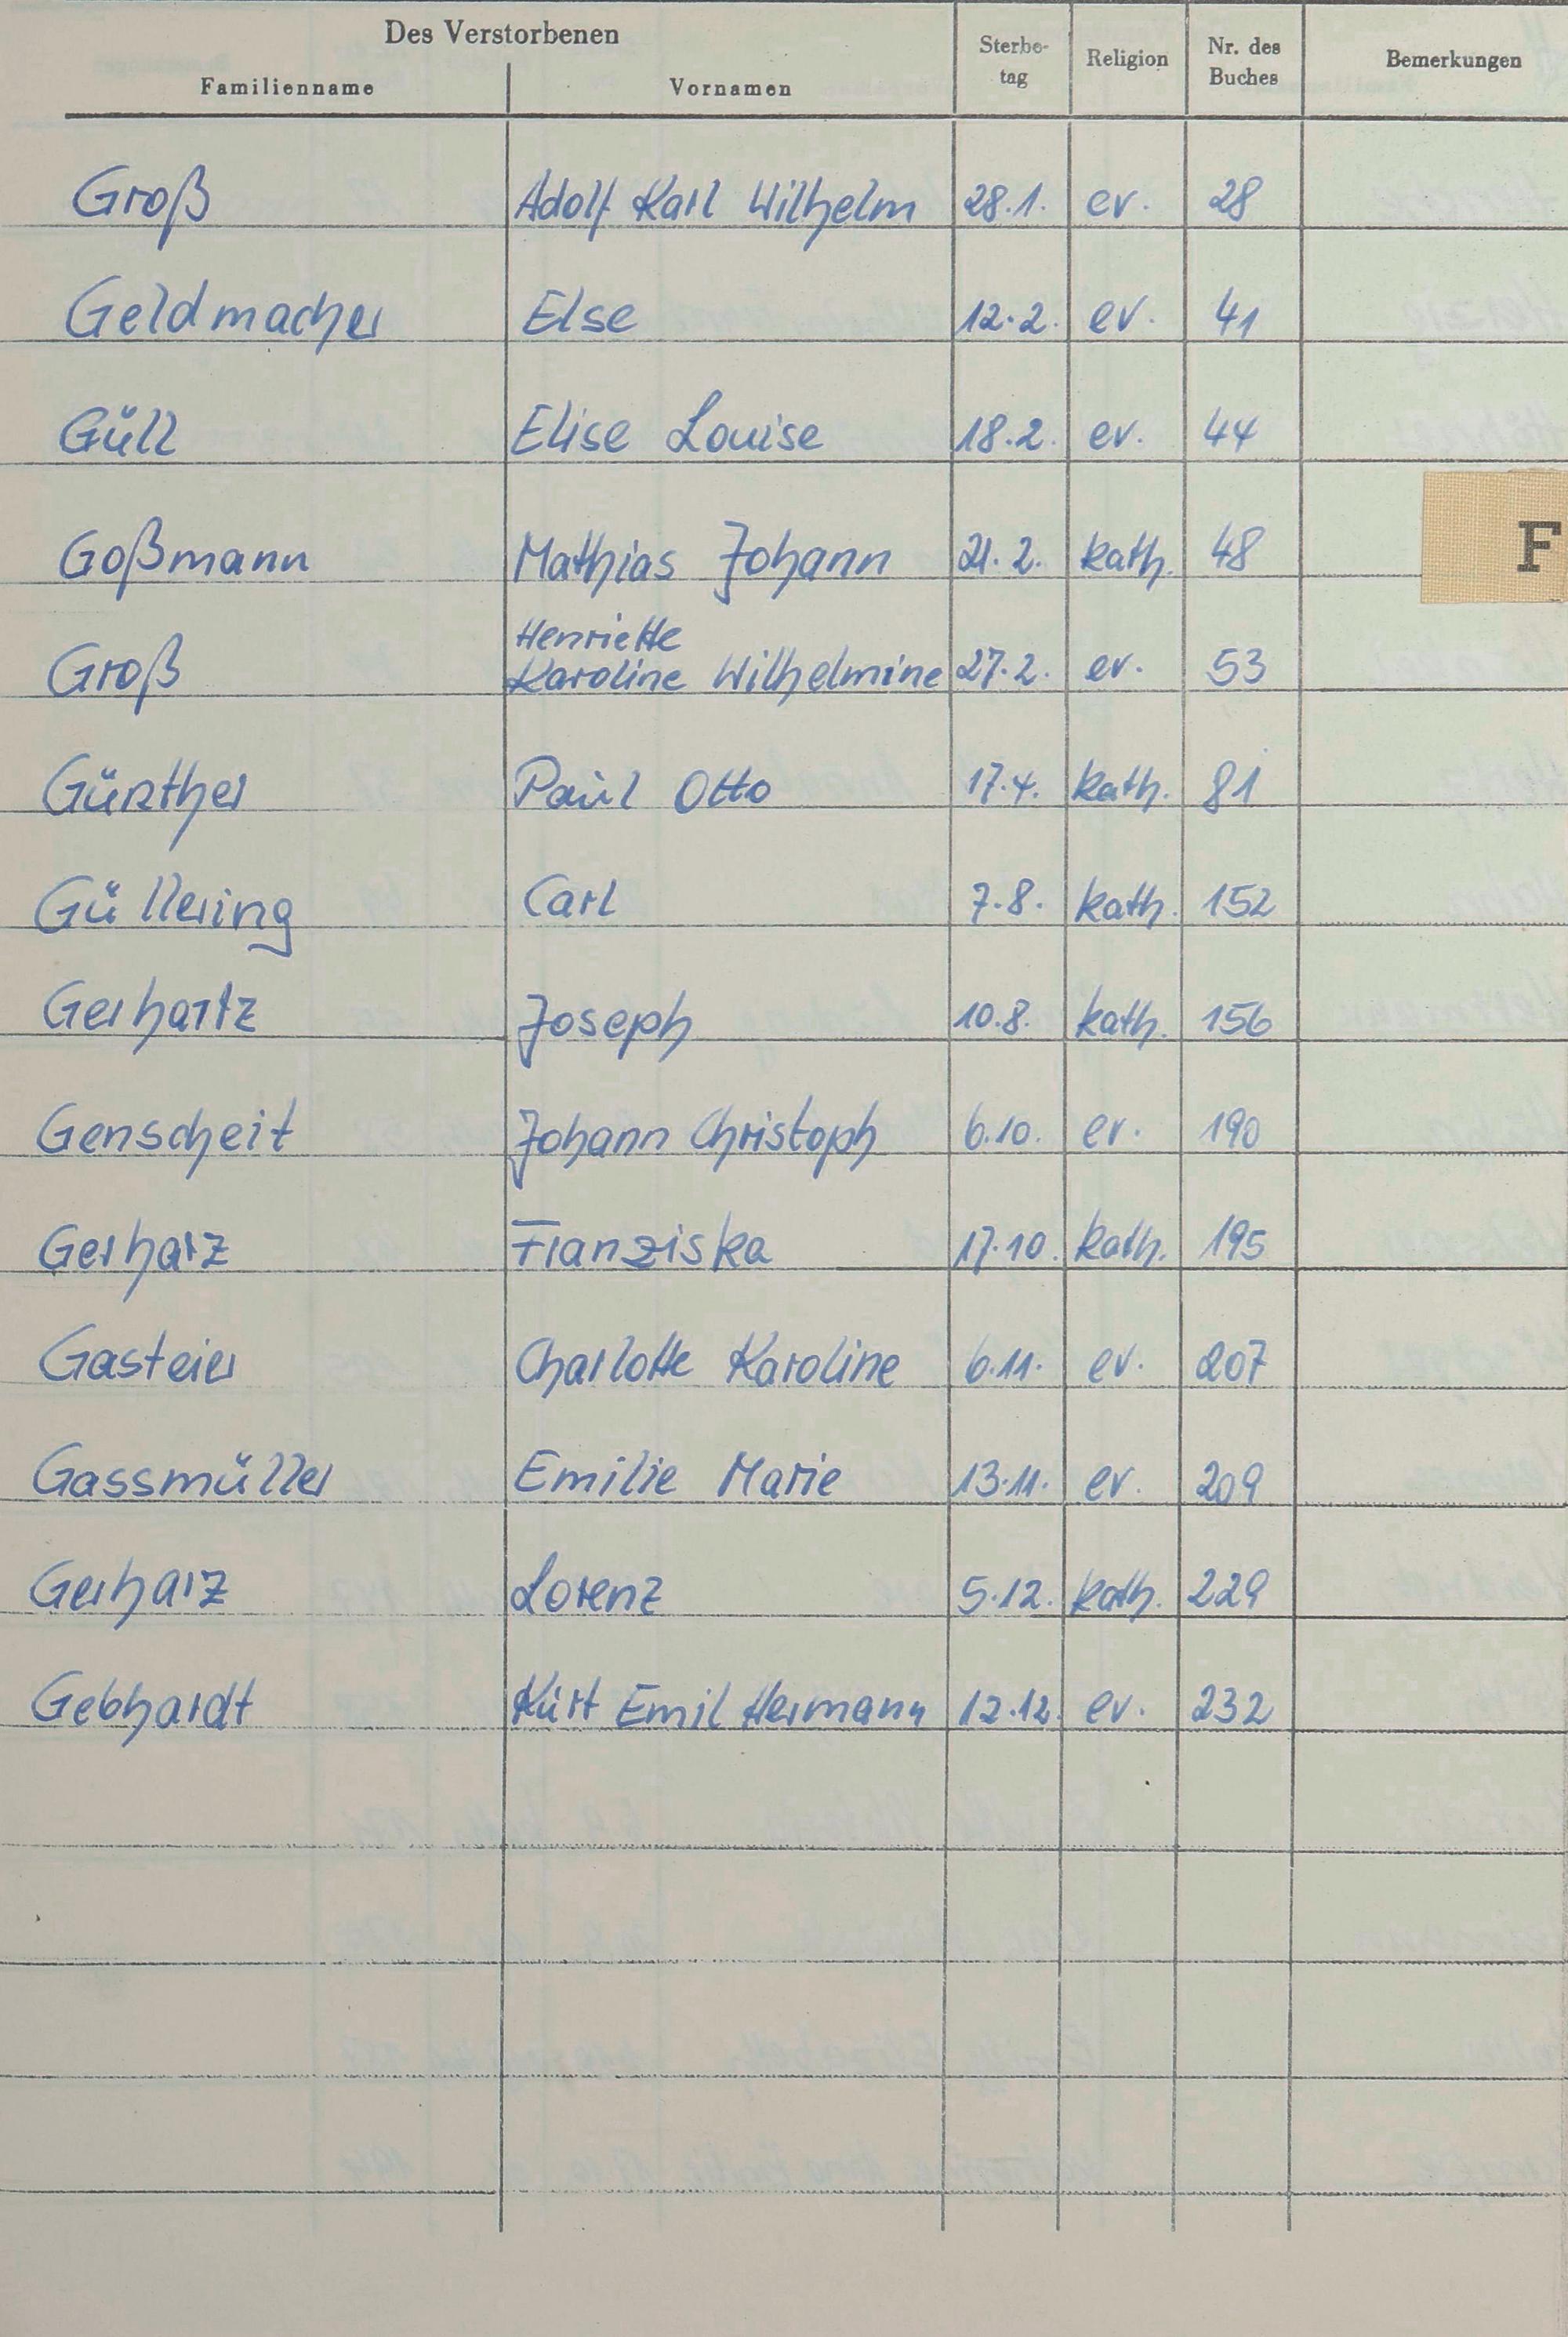 Des Verstorbenen
Familienname Vornamen Sterbe-tag Religion Nr. des Buches Bemerkungen
Groß Adolf Karl Wilhelm 28.1. ev. 28
Geldmacher Else 12.2. ev. 41
Güll Elise Louise 18.2. ev. 44
Goßmann Mathias Johann 21.2. kath. 48
F
Henriette
Groß Karoline Wilhelmine 27.2. ev. 53
Günther Paul Otto 17.4. kath. 81
Güllering Carl 7.8. kath. 152
Gerhartz Joseph 10.8. kath. 156
Genscheit Johann Christoph 6.10. ev. 190
Gerharz Franziska 17.10. kath. 195
Gasteier Charlotte Karoline 6.11. ev. 207
Gassmüller Emilie Marie 13.11. ev. 209
Gerharz Lorenz 5.12. kath. 229
Gebhardt Kurt Emil Hermann 12.12. ev. 232